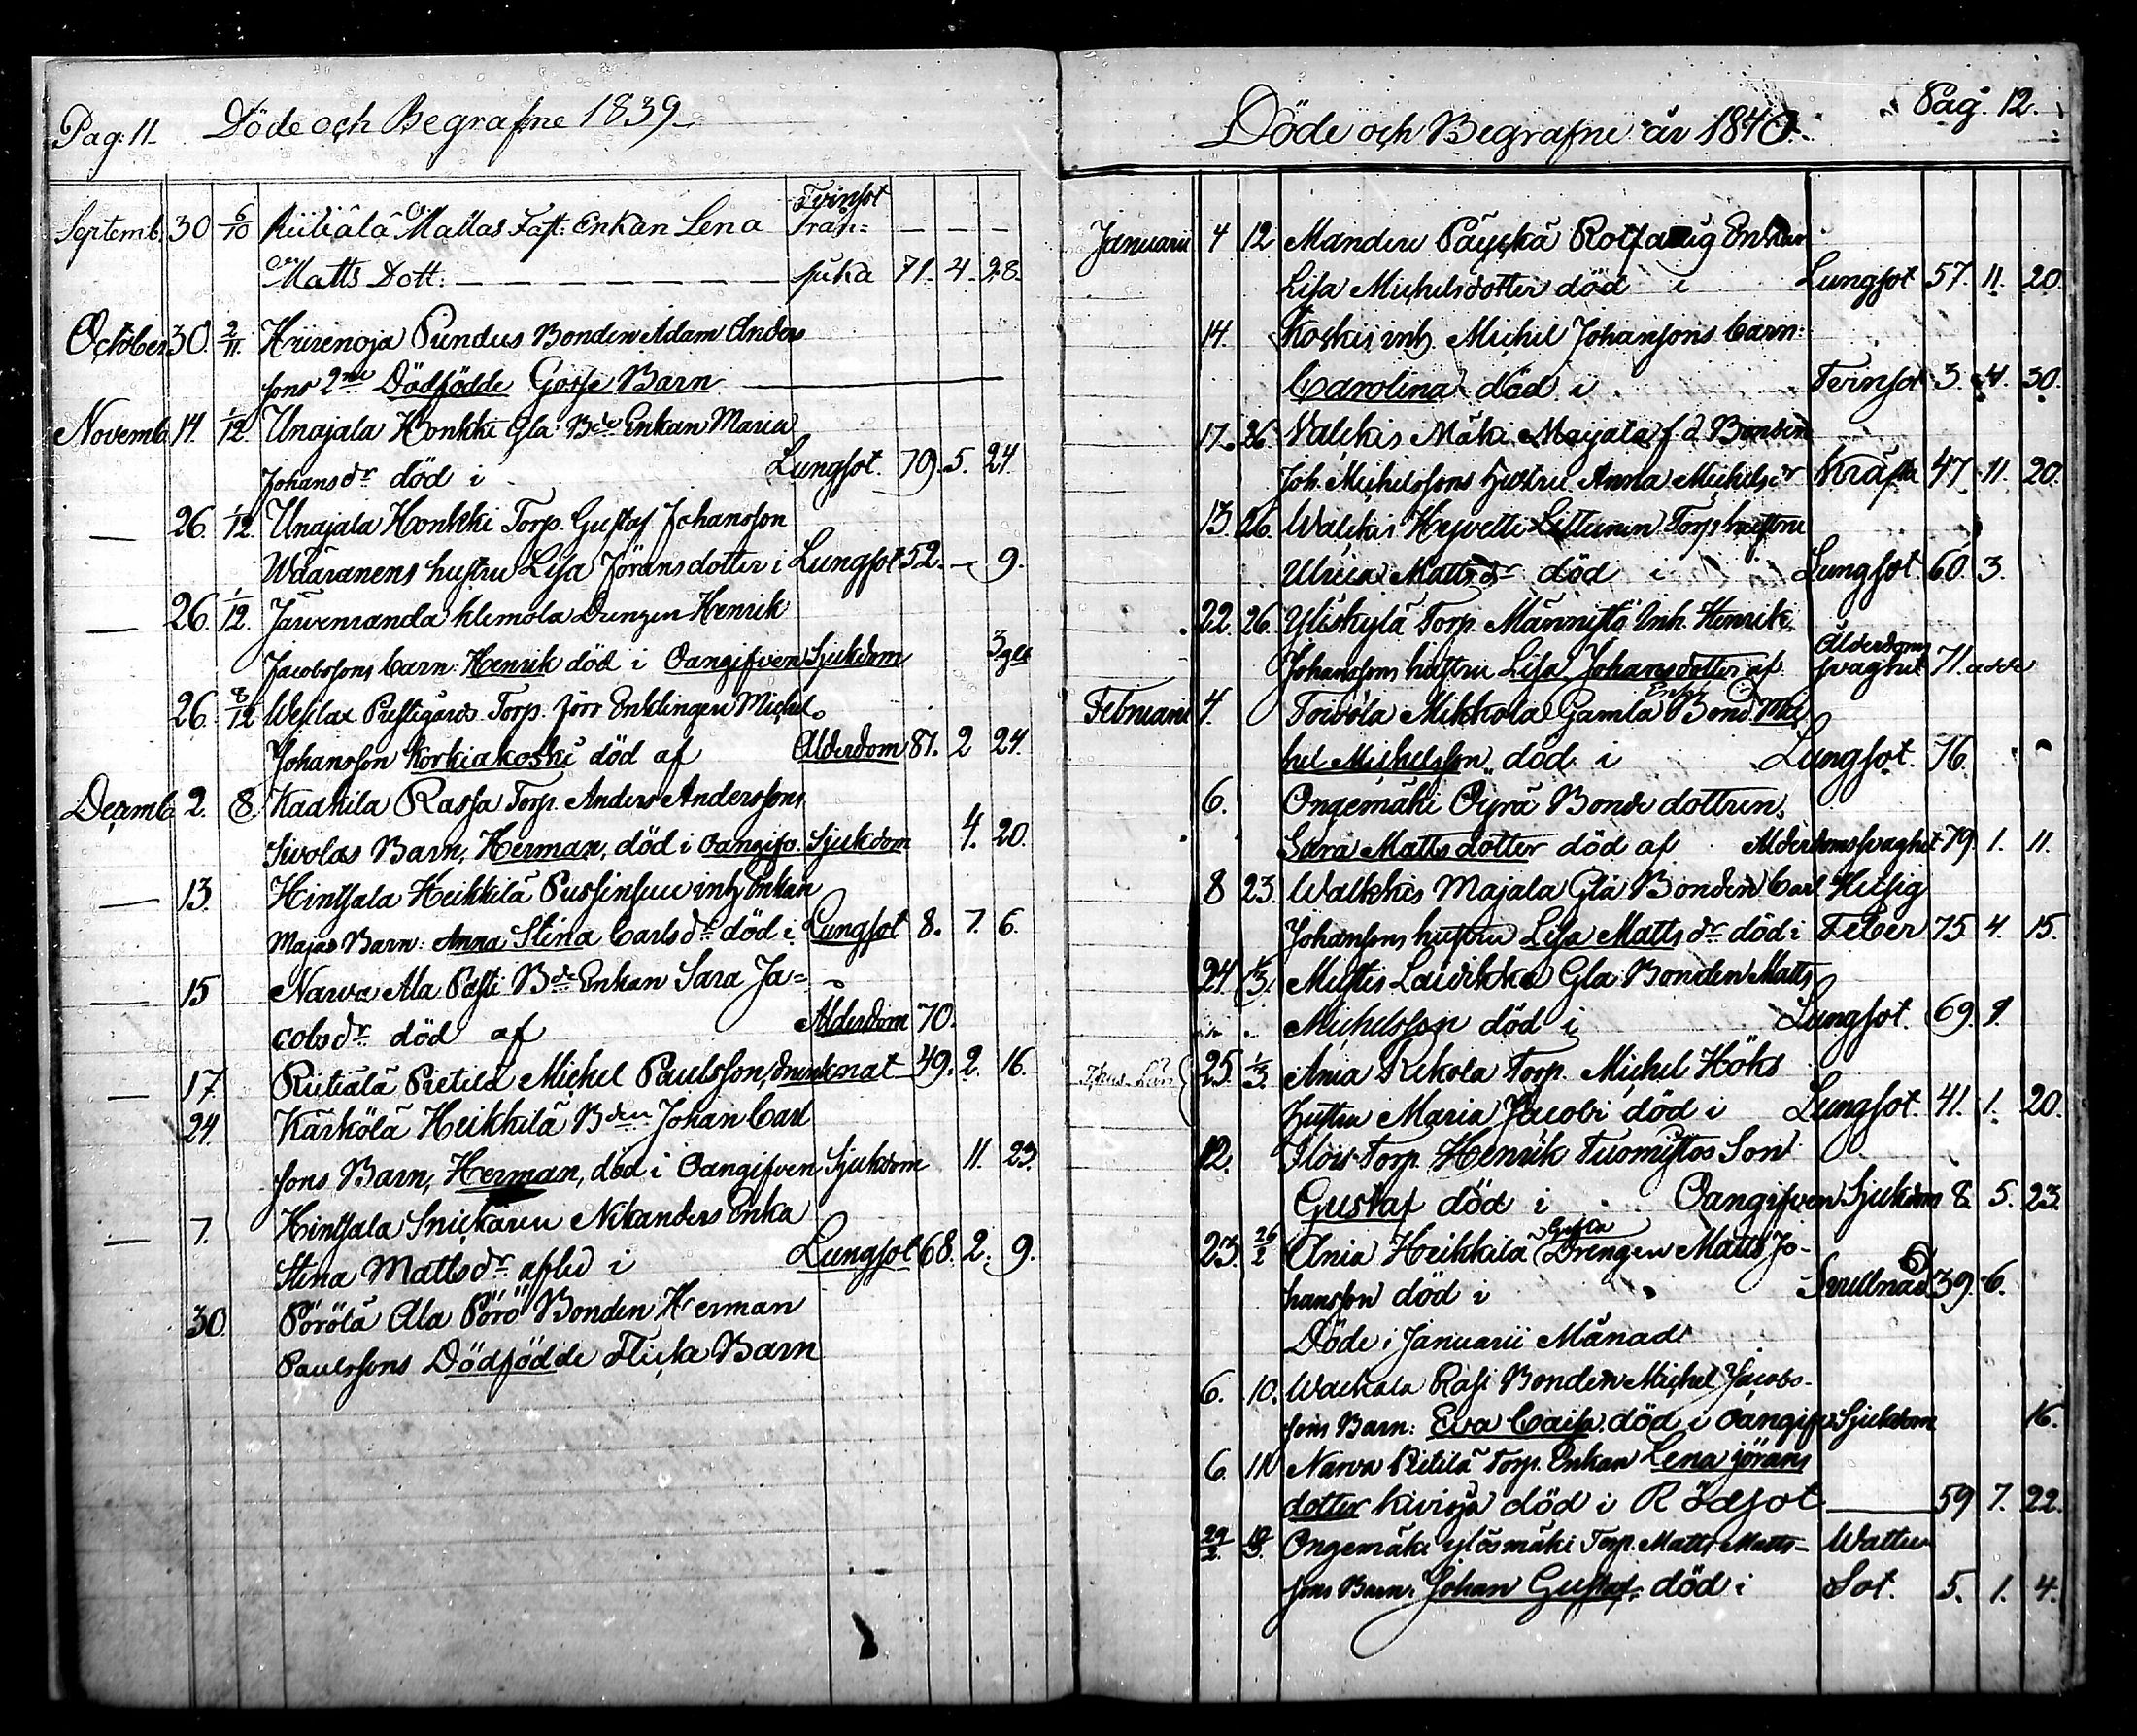 Pag. 11. Döde och Begrafne 1839
Septemb. 30 6/10 Riitiälä Mattas Fatt. Enkan Lena
Matts Dott. sjuka 71. 4. 28.
October 30. 2/11. Hiirenoja Pundus Bonden Adam Anders
sons 2ne Dödfödde Gosse Barn
Novemb. 14. 1/12. Unajala Honkki Gla Bde Enkan Maria
Johansdr död i Lungsot. 79. 5. 24.
26. 1/12. Unajala Honkki Torp. Gustaf Johansson
Wääränens hustru Lisa Jöransdotter i Lungsot 52. - 9.
26. 1/12. Järvenranda Klemola Drengen Henrik
Jacobssons barn: Henrik död i Oangifven Sjukdom
26. 8/12 Wesilax Prestgårds Torp. förr Enklingen Michel
Johansson Korkiakoski död af Ålderdom 81. 2 24.
Decemb. 2. 8. Kadkila Rassa Torp. Anders Anderssons
Sivolas Barn, Herman, död i oangifv. Sjukdom 4. 20.
13. Hintsala Heikkilä inh Enkan
Majas Barn: Anna Stina Carlsdr död i Lungsot 8. 7. 6.
15 Narva Ala Påsti Bde Enkan Sara Ja=
cobsdr död af Ålderdom 70.
17. Riitiälä Pietilä Michel Paulsson, drunknat 49. 2. 16.
24. Kärkölä Heikkilä Bden Johan Carl
sons Barn, Herman, död i Oangifven Sjukdom 11. 23.
7. Hintsala Snickaren Nikanders Enka
Stina Mattsdr afled i Lungsot 68. 2. 9.
30. Pörölä Ala Pörö Bonden Herman
Paulssons Dödfödde Flicka Barn
Pag. 12.
Döde och Begrafne år 1840.
Januarii 4 12 Mandere Enkan
Lisa Michelsdotter död i Lungsot 57. 11. 20.
14. Koskis inh. Michel Johanssons barn:
Carolina död i Tvinsot 3. 4. 30.
17. 26. Valckis Mäki Maijala f.d. Bonden
Joh. Michelssons Hustru Anna Michelsdr Kräfta 47. 11. 20.
13. 26. Walckis Hyvetti Torp. hustru
Ulrica Mattsdr död i Lungsot 60. 3.
22. 26. Yliskylä Torp. Männistö Inh. Henrik
Johanssons hustru Lisa Johansdotter af Ålderdoms svaghet 71.
Februarii 4. Toivola Mikkola Gamla Bond. Mic
hel Michelsson död i Lungsot. 76.
6. Ongemäki Öyrä Bonde dottren,
Sara Matts dotter död af Ålderdomssvaghet 79. 1. 11.
8 23. Walkkis Majala Gla Bonden Carl Hitsig
Johanssons hustru Lisa Mattsdr död i Feber 75 4. 15.
24. 1/3. Mustis Lauvikka Gla Bonden Matts
Michelsson död i Lungsot. 69. 9.
25. 1/3. Ania Rekola Torp. Michel Höks
Hustru Maria Jacobs död i Lungsot. 41. 1. 20.
12. Ilois Torp. Henrik Tuomistos Son
Gustaf död i Oangifven Sjukdom 8. 5. 23.
23. 26/2 Ania Heikkilä Gifta Drengen Matts Jo-
hansson död i Svullnad 39. 6.
Döde i Januarii Månad
6. 10. Wackala Rasi Bonden Michel Jacobs-
sons Barn: Eva Caisa död i oangifv. Sjukdom 16.
6. 11 Narva Pietilä Torp. Enkan Lena Jörans
dotter Kivioja död i Rödsot 59 7. 22.
29/2. Ongemäki Ylösmäki Torp. Matts Matts- Wattu
sons Barn: Johan Gustaf, död i Sot. 5. 1. 4.